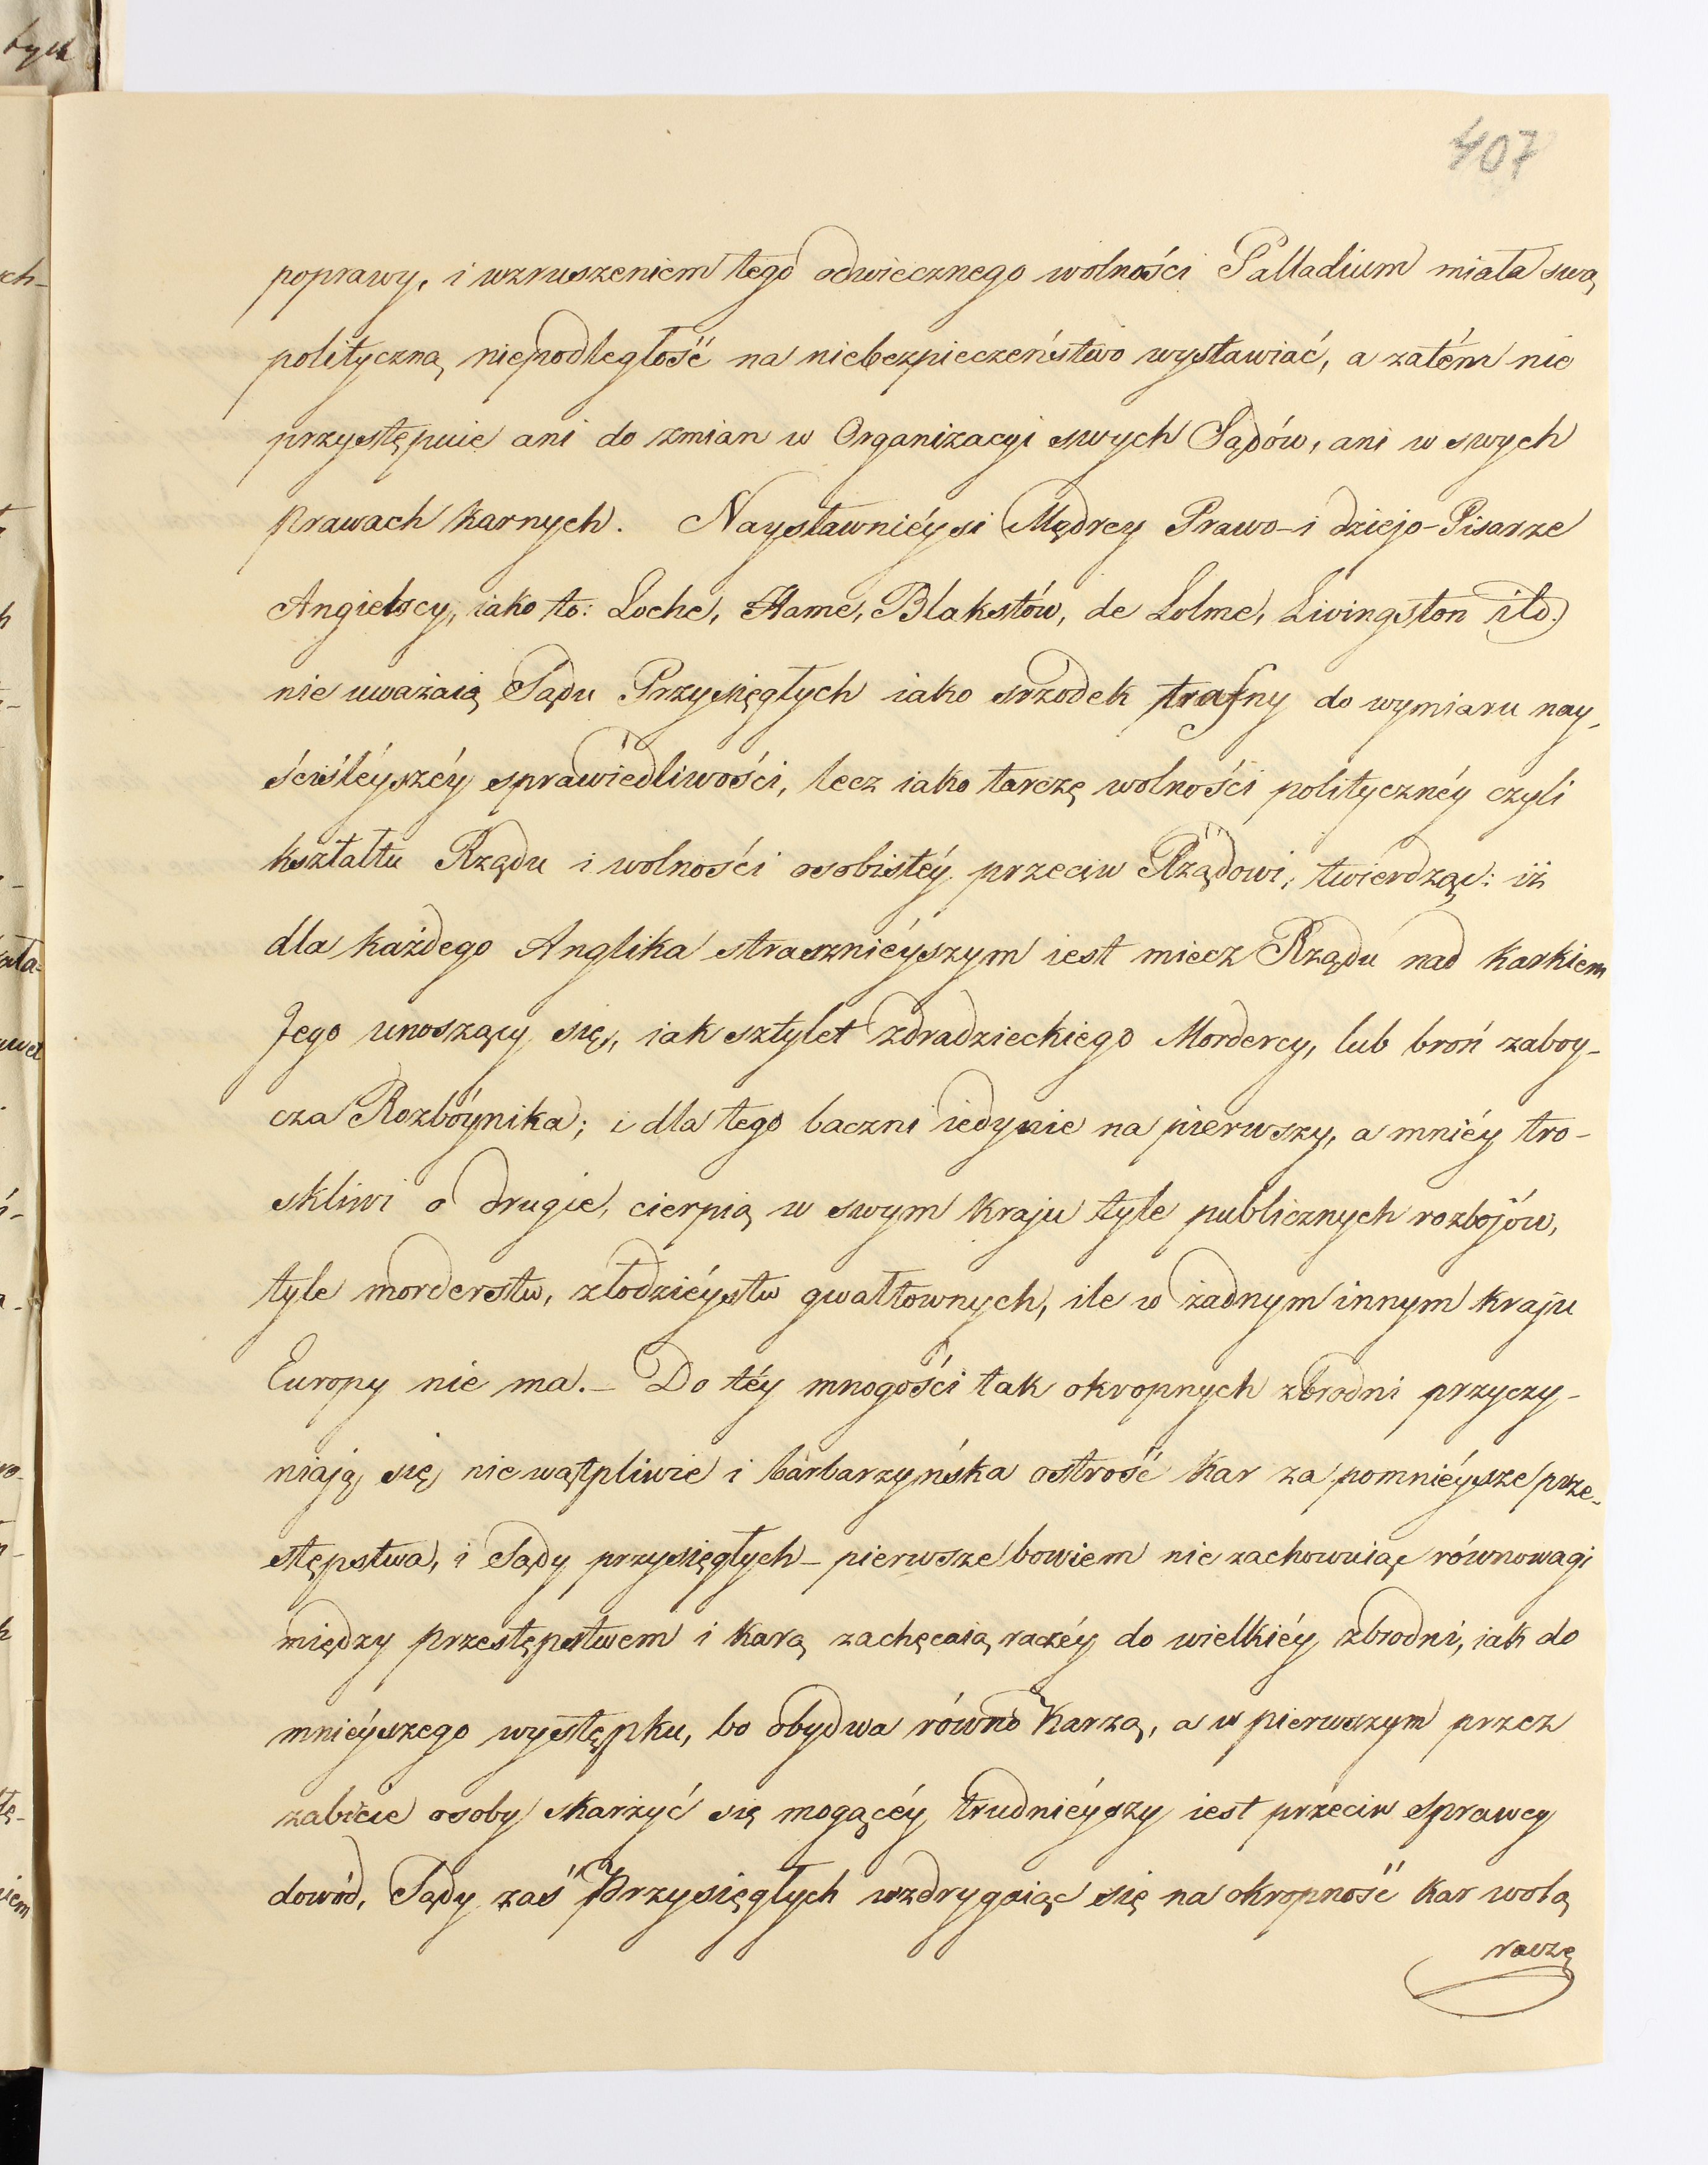 407
poprawy, i wzruszeniem tego odwiecznego wolności Palladium miała swą
polityczną niepodległość na niebezpieczeństwo wystawiać, a zatém nie
przystępuie ani do zmian w Organizacyi swych Sądów, ani w swych
prawach karnych. Naysławnieysi Mędrcy Prawo-i dziejo-Pisarze
Angielscy, iako to: Loche, Hame, Blakstów, de Lolme, Livingston itd.
nie uważaią Sądu Przysięgłych iako srzodek trafny do wymiaru nay-
ściśléyszéy sprawiedliwości, lecz iako tarczę wolności polityczney czyli
kształtu Rządu i wolności osobistéy przeciw Rządowi; twierdząc: iż
dla każdego Anglika strasznieyszym iest miecz Rządu nad karkiem
Jego unoszący się, iak sztylet zdradzieckiego Mordercy, lub broń zaboy-
cza Rozbóynika; i dla tego baczni iedynie na pierwszy, a mniéy tro-
skliwi o drugie, cierpią w swym kraju tyle publicznych rozbojów,
tyle morderstw, złodziéystw gwałtownych, ile w żadnym innym kraju
Europy nie ma. - Do téy mnogości tak okropnych zbrodni przyczy-
niają się niewątpliwie i barbarzyńska ostrość kar za pomniéysze prze-
stępstwa, i Sądy przysięgłych - pierwsze bowiem nie zachowuiąc równowagi
między przestępstwem i karą zachęcaią raczéy do wielkiéy zbrodni, iak do
mniéyszego występku, bo obydwa równo karzą, a w pierwszym przez
zabicie osoby skarżyć się mogącéy trudniéyszy iest przeciw sprawcy
dowód, Sądy zaś Przysięgłych wzdrygaiąc się na okropność kar wolą
raczę